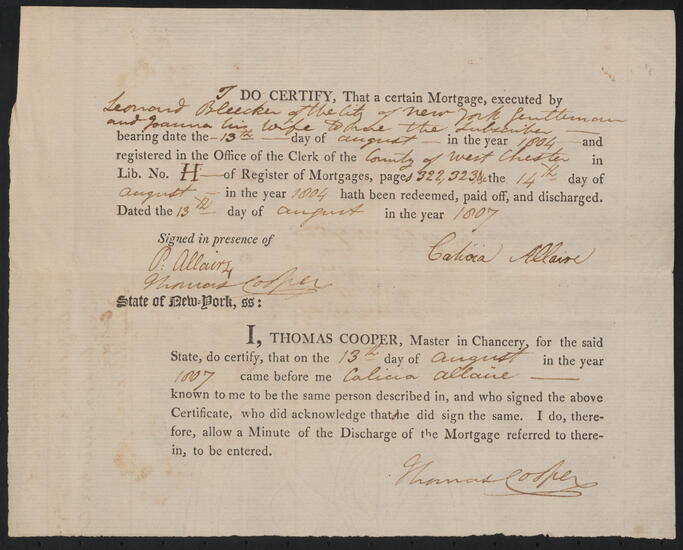 I DO CERTIFY, That a certain Mortgage, executed by
Leonard Bleecker of the City of New York Gentleman
and Joanna his wife to me the Subscriber —
bearing date the 13th day of august — in the year 1804 — and
registered in the Office of the Clerk of the County of West Chester in
Lib. No. H — of Register of Mortgages, pages 322, 323, the 14th day of
august — in the year 1804 hath been redeemed, paid off, and discharged.
Dated the 13th day of august in the year 1807
Signed in presence of
Calicia Allaire
P. Allaire
Thomas Cooper
State of New-York, ss:
I, THOMAS COOPER, Master in Chancery, for the said
State, do certify, that on the 13th day of august in the year
1807 came before me Calicia allaire —
known to me to be the same person described in, and who signed the above
Certificate, who did acknowledge that she did sign the same. I do, there-
fore, allow a Minute of the Discharge of the Mortgage referred to there-
in, to be entered.
Thomas Cooper